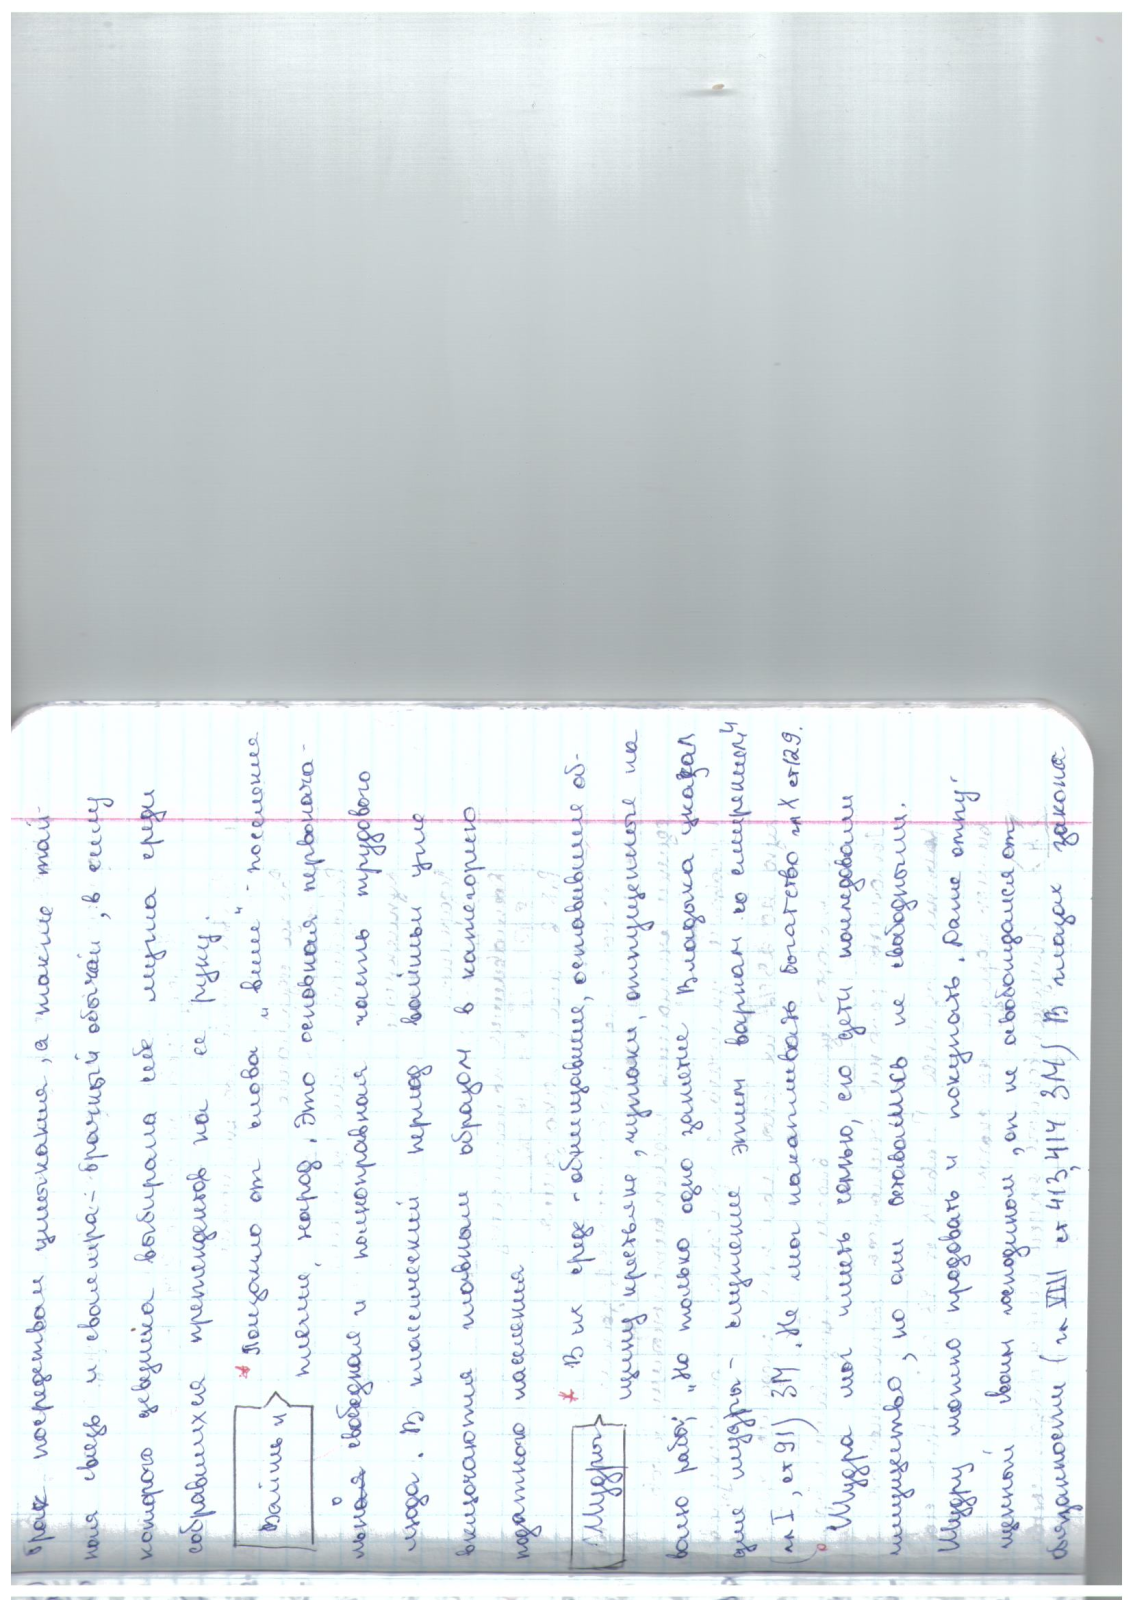 брак посредством умыкания, а также тай-
ная связь и сваямвара - брачный обычай, в силу
которого девушка выбирала себе мужа среди
собравшихся претендентов на ее руку.
Вайшьи * Пошло от слова „више" - поселение
племя, народ. Это основная первонача-
льная свободная и полноправная часть трудового
люда. В классический период вайшьи уже
включаются главным образом в категорию
податного населения
Шудры * В их среде - обнищавшие, оставившие об-
щину крестьяне, чужаки, отпущенные на
волю рабы; „Но только одно занятие Владыка указал
для шудры - служение этим варнам со смирением"
(гл I, ст 91) ЗМ. Не мог накапливать богатство гл X ст 129.
Шудра мог иметь семью, его дети наследовали
имущество, но они оставались не свободными.
Шудру можно продавать и покупать. Даже отпу-
щенный своим господином, он не освобождался от
обязанности (гл VIII ст 413, 414 ЗМ) В глазах закона